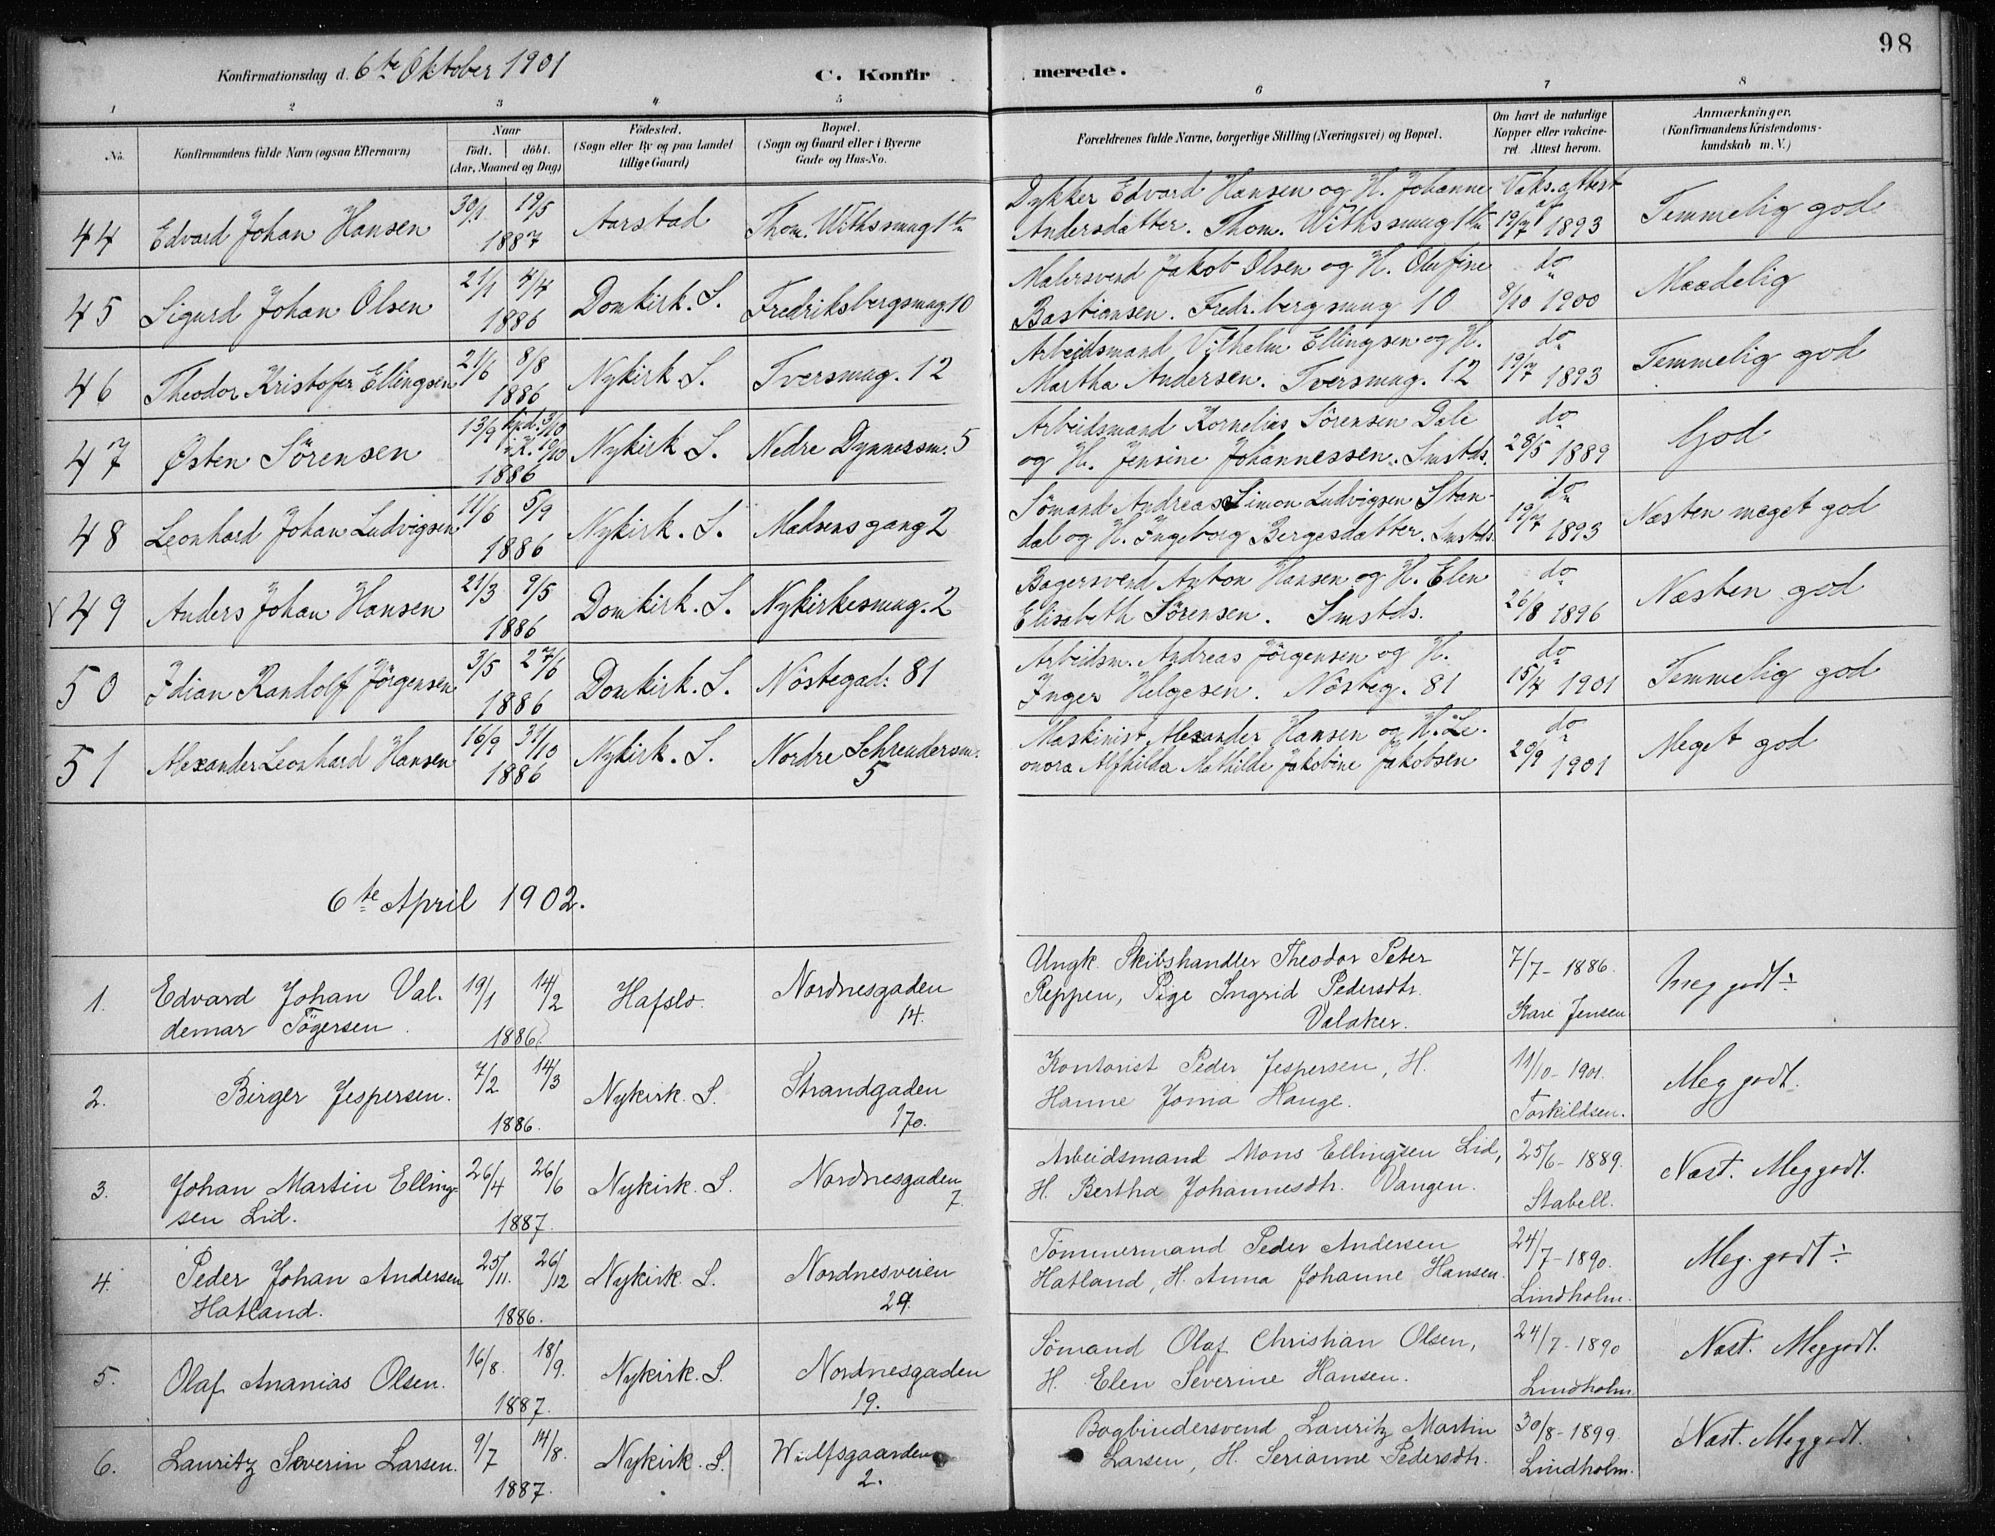 98
Konfirmationsdag d. 6te Oktober 1901
C. Konfirmerede.
1 2 3 4 5 6 7 8
No.
Konfirmandens fulde Navn (ogsaa Efternavn)
Naar
födt. döbt.
(Aar, Maaned og Dag)
Födested.
(Sogn eller By og paa Landet
tillige Gaard)
Bopæl.
(Sogn og Gaard eller i Byerne
Gade og Hus-No.
Forældrenes fulde Navne, borgerlige Stilling (Næringsvei) og Bopæl.
Om havt de naturlige
Kopper eller vakcine-
ret. Attest herom.
Anmærkninger.
(Konfirmandens Kristendoms-
kundskab m. V.)
44 Edvard Johan Hansen 30/1 19/5 1887 Aarstad Thom. Withssmug 1 tn
Dykker Edvard Hansen og H. Johanne
Andersdatter. Thom. Withssmug 1 tn
Vaks. attest af
19/7 1893
Temmelig god
45 Sigurd Johan Olsen 21/1 4/4 1886 Domkirk. S. Fredriksbergsmug. 10
Malersvend Jakob Olsen og H. Olufine
Bastiansen. Fredr.bergsmug 10
do
9/10 1900
Maadelig
46 Theodor Kristofer Ellingsen 21/6 8/8 1886 Nykirk. S. Tversmug. 12
Arbeidsmand Vilhelm Ellingsen og H.
Martha Andersen. Tversmug. 12
do
19/7 1893
Temmelig god
47 Østen Sörensen 13/9 hjd. 3/10 i K. 10/10 1886 Nykirk. S. Nedre Dynnersm. 5
Arbeidsmand Kornelius Sörensen Dale
og H. Jensine Johannessen. Smstds.
do
28/5 1889
God
48 Leonhard Johan Ludvigsen 11/6 5/9 1886 Nykirk. S. Madsensgang 2
Sömand Andreas Simon Ludvigsen Stan-
dal og H. Ingeborg Bergesdatter. Smstds.
do
19/7 1893
Næsten meget god
49 Anders Johan Hansen 21/3 9/5 1886 Domkirk. S. Nykirkesmug. 2
Bagersvend Anton Hansen og H. Elen
Elisabeth Sörensen. Smstds.
do
26/8 1896
Næsten god
50 Idian Randolf Jörgensen 3/5 27/6 1886 Domkirk. S. Nöstegad. 81
Arbeidsm. Andreas Jörgensen og H.
Inger Helgesen. Nösteg. 81
do
15/4 1901
Temmelig god
51 Alexander Leonhard Hansen 16/9 31/10 1886 Nykirk. S. Nordre Schreudersm.
5
Maskinist Alexander Hansen og H. Le-
onora Alfhilda Mathilde Jakobine Jakobsen
do
20/9 1901
Meget god
6te April 1902.
1. Edvard Johan Val-
demar Tögersen. 19/1 14/2 1886 Hafslo. Nordnesgaden
14.
Ungk. Skibshandler Theodor Peter
Reppen, Pige Ingrid Pedersdtr.
Valaker.
7/7 - 1886.
Kare Jensen
Meg godt ÷
2. Birger Jespersen. 7/2 14/3 1886. Nykirk. S. Strandgaden
170.
Kontorist Peder Jespersen, H.
Hanne Joma Hauge.
11/10 - 1901.
Torkildsen.
Meg godt.
3. Johan Martin Elling-
sen Lid. 26/4 26/6 1887. Nykirk. S. Nordnesgaden
7.
Arbeidsmand Mons Ellingsen Lid,
H. Bertha Johannesdtr. Vangen.
25/6 - 1889.
Stabell.
Næst. Meg godt.
4. Peder Johan Andersen
Hatland. 25/11. 26/12 1886. Nykirk. S. Nordnesveien
29.
Tömmermand Peder Andersen
Hatland, H. Anna Johanne Hansen.
24/7 - 1890.
Lindholm.
Meg. godt ÷
5. Olaf Ananias Olsen. 16/8. 18/9. 1887. Nykirk. S. Nordnesgaden
19.
Sömand Olaf Christian Olsen,
H. Elen Severine Hansen.
24/7 - 1890
Lindholm
Næst. Meg godt.
6. Lauritz Severin Larsen. 9/7 14/8. 1887. Nykirk. S. Wulfsgaarden
2.
Bogbindersvend Lauritz Martin
Larsen, H. Serianne Pedersdtr.
30/8 - 1899.
Lindholm.
Næst. Meg godt.